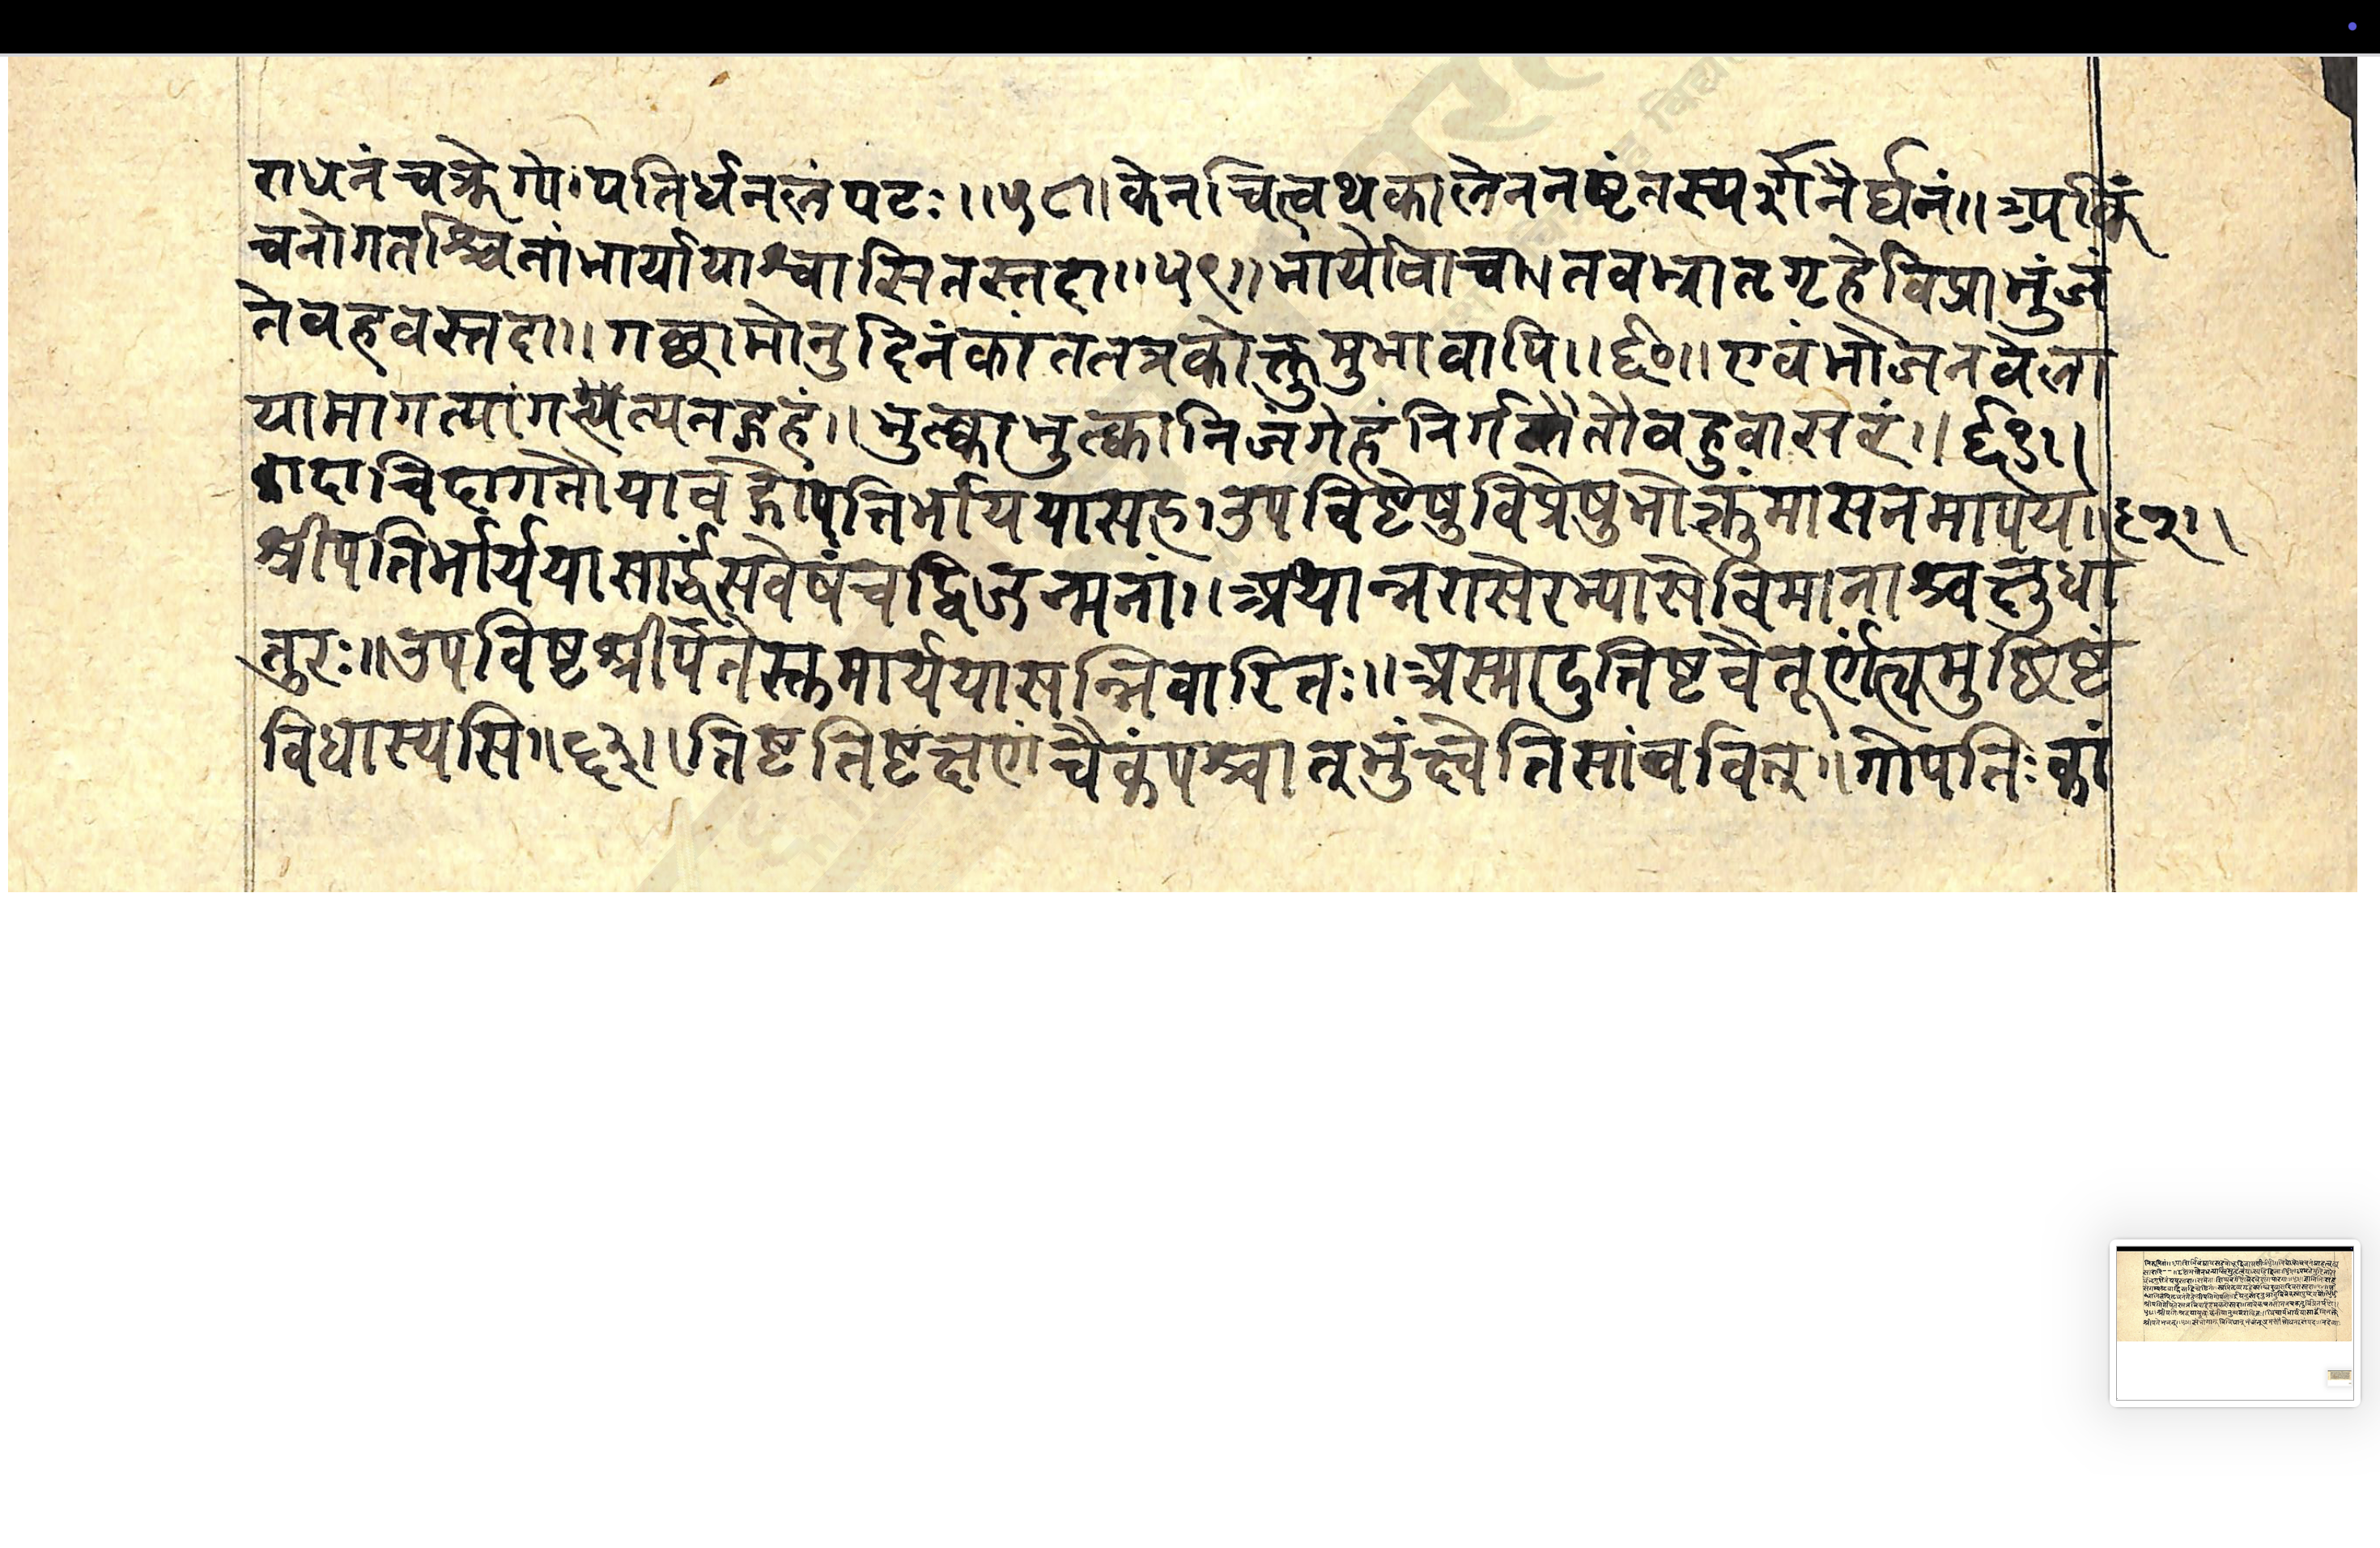 राधनंचक्रेगोपतिर्धनलंपटः।।५८।केनचित्वथकालेननष्टंतस्यर्गनैर्घनं।।अपकिं
चनोगतश्चिनांभार्यायाश्वासितस्तदा।।५९।।भार्योवाच।।तवभ्रातृगृहेविप्राभुंजं
तेवहवस्तदा।।गछामोनुदिनंकांततत्रवोक्तुमुभावापि।।६०।।एवंभोजनवेला
यामागत्यागत्यतद्गृहं।।भुत्काभुत्कानिजंगेहंनिर्गतौतौवहुवासरं।।६१।।
कादाचिदागतौयावद्गोपतिर्भाययासह।उपविष्टेषुविप्रेषुभोक्तुंमासनमापय।।६२।।
श्रीपतिर्भार्ययासार्द्धंसवेषंचद्विजन्मनां।।अथान्तरासेरभ्यासेविमानाश्वक्षुधा
तुरः।।उपविष्टश्रीपतेस्तभार्ययासन्निवारितः।।अस्मादुत्तिष्टवैतूर्णंत्वमुछिष्टं
विधास्यसि।।६३।।तिष्टतिष्टक्षणंचैकंपश्चात्भुंक्ष्वेतिसांववित्।।गोपतिःकां